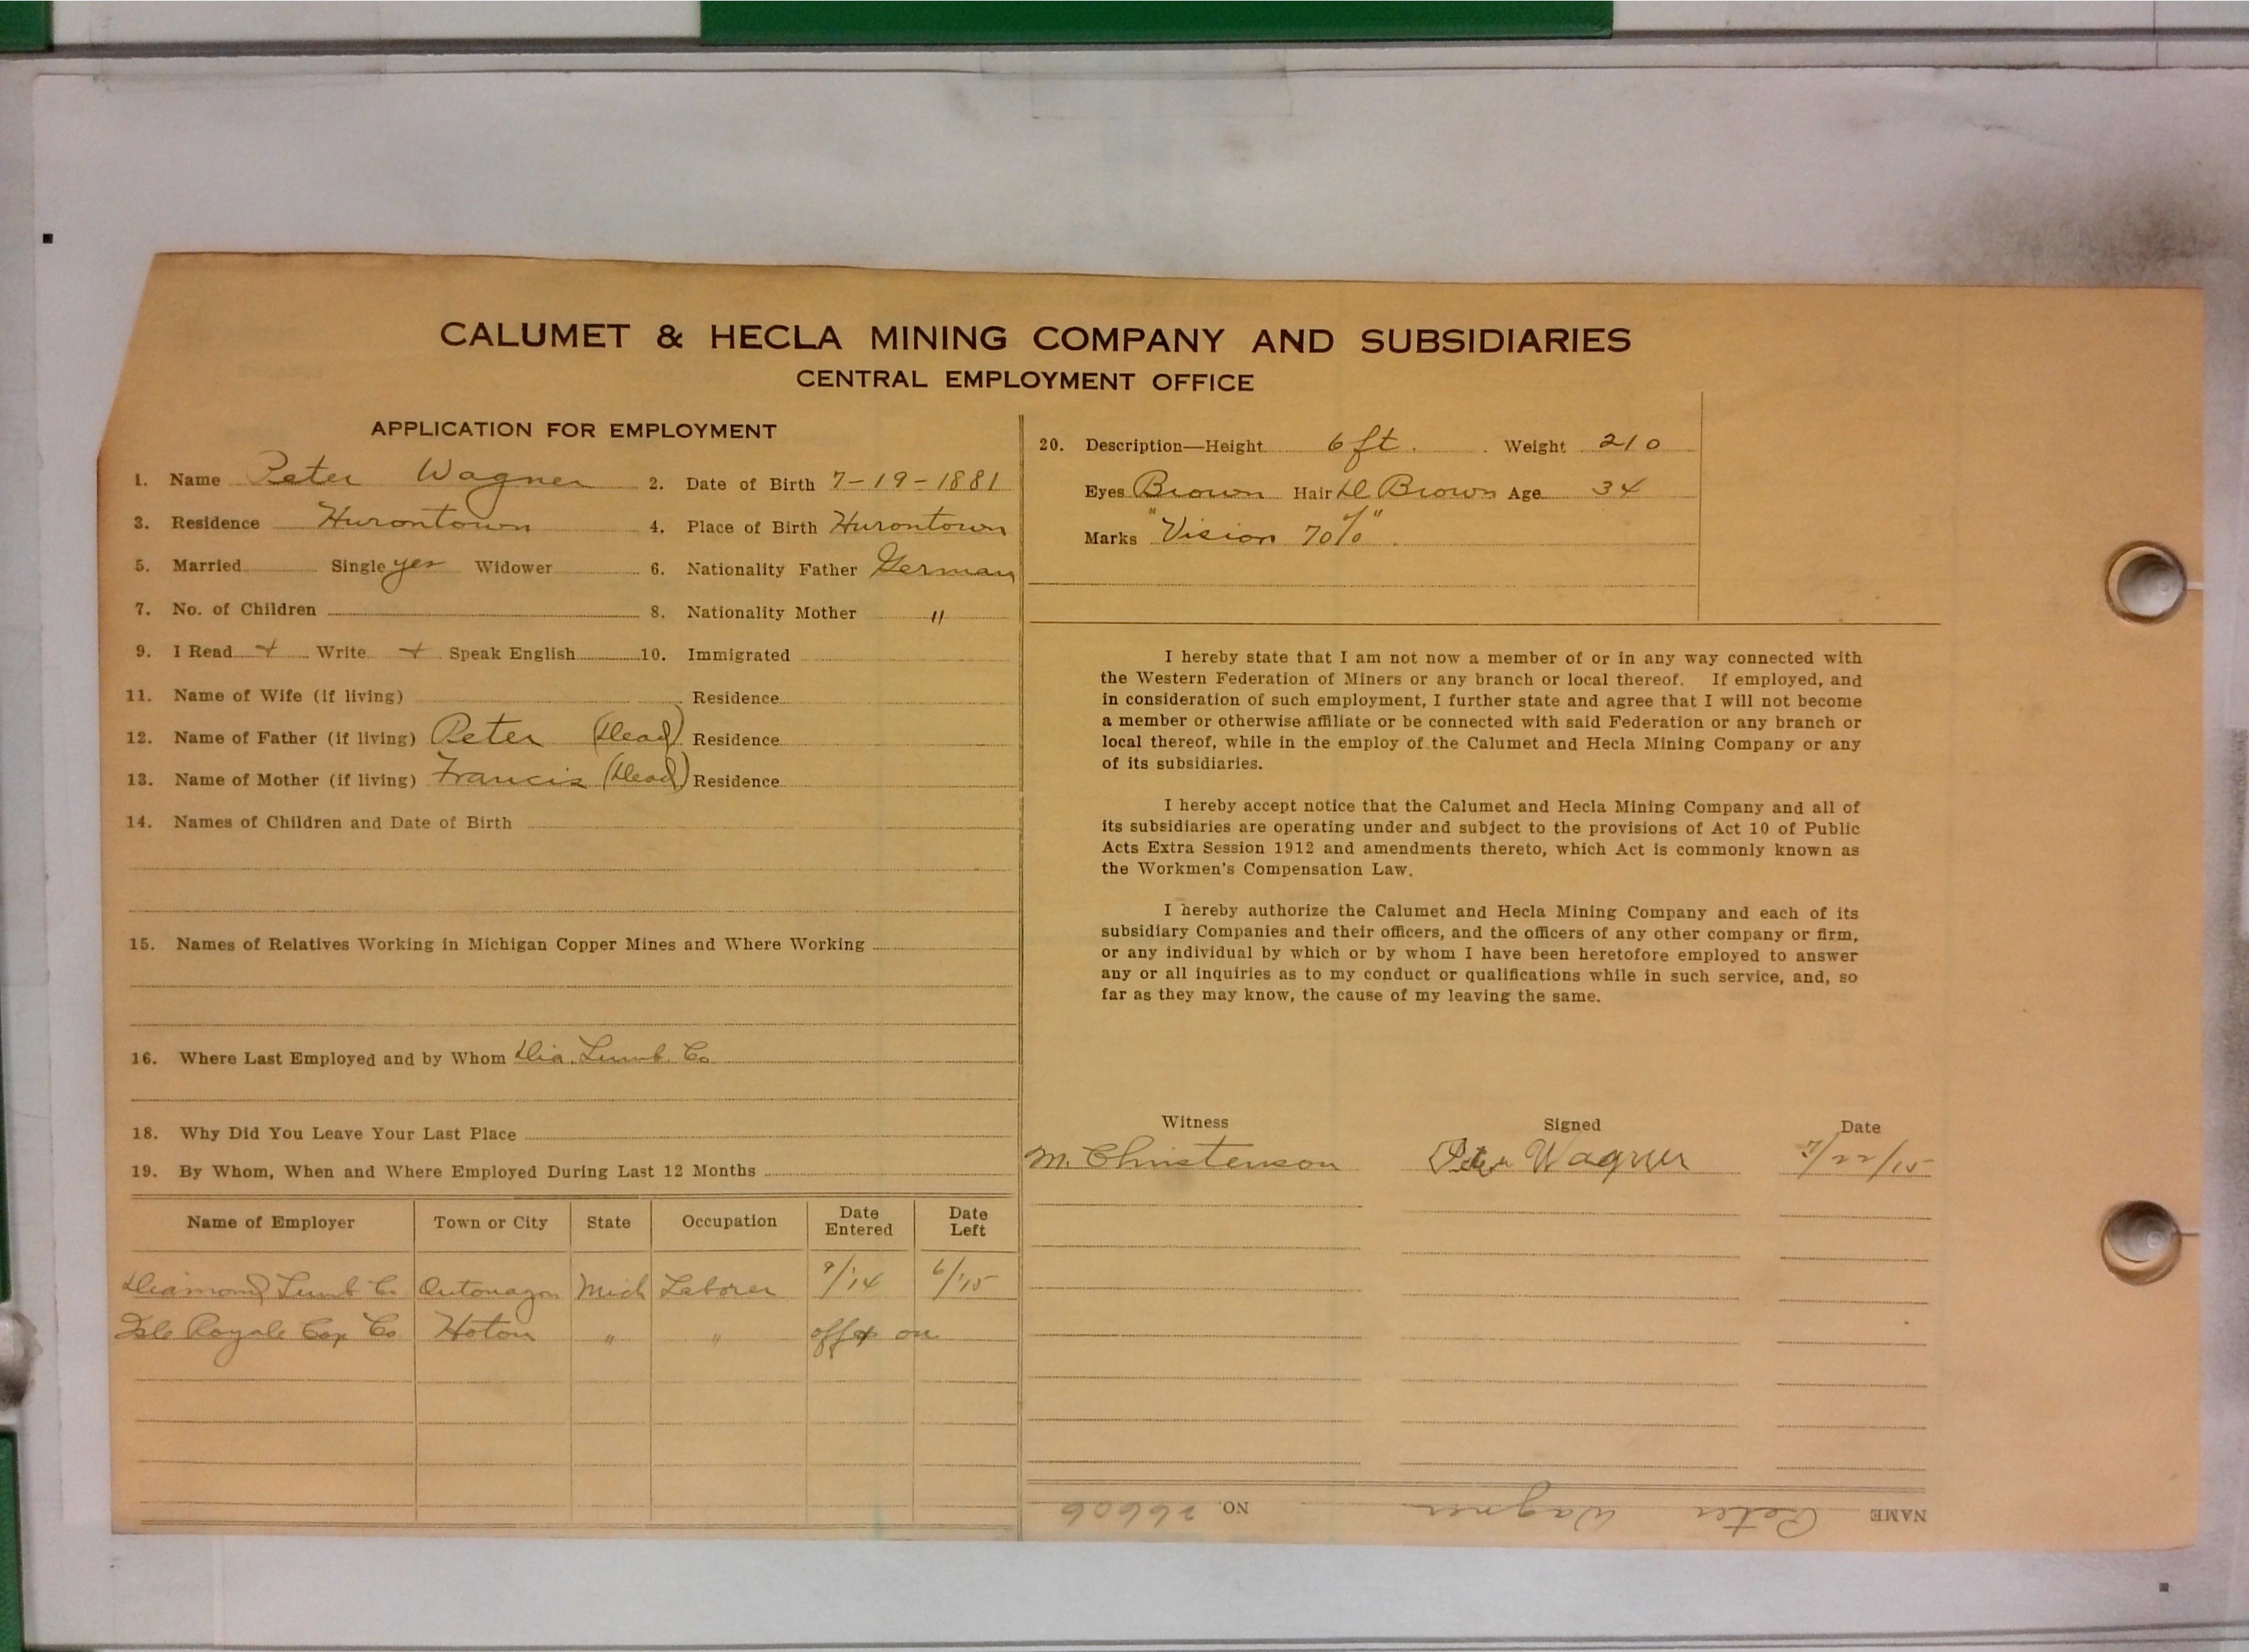 CALUMET & HECLA MINING COMPANY AND SUBSIDIARIES
CENTRAL EMPLOYMENT OFFICE
APPLICATION FOR EMPLOYMENT
1. Name Peter Wagner 2. Date of Birth 7-19-1881
3. Residence Hurontown 4. Place of Birth Hurontown
5. Married Single yes Widower 6. Nationality Father German
7. No. of Children 8. Nationality Mother "
9. I Read + Write + Speak English 10. Immigrated
11. Name of Wife (if living) Residence
12. Name of Father (if living) Peter (Dead) Residence
13. Name of Mother (if living) Francis (Dead) Residence
14. Names of Children and Date of Birth
15. Names of Relatives Working in Michigan Copper Mines and Where Working
16. Where Last Employed and by Whom Dia. Lumb. Co
18. Why Did You Leave Your Last Place
19. By Whom, When and Where Employed During Last 12 Months
Name of Employer Town or City State Occupation Date Entered Date Left
Diamond Lumb Co Ontonagon Mich Laborer 9/14 6/15
Isle Royale Cop Co Hoton " " off + on
20. Description—Height 6 ft. Weight 210
Eyes Brown Hair D Brown Age 34
Marks "Vision 70%"
I hereby state that I am not now a member of or in any way connected with
the Western Federation of Miners or any branch or local thereof. If employed, and
in consideration of such employment, I further state and agree that I will not become
a member or otherwise affiliate or be connected with said Federation or any branch or
local thereof, while in the employ of the Calumet and Hecla Mining Company or any
of its subsidiaries.
I hereby accept notice that the Calumet and Hecla Mining Company and all of
its subsidiaries are operating under and subject to the provisions of Act 10 of Public
Acts Extra Session 1912 and amendments thereto, which Act is commonly known as
the Workmen's Compensation Law.
I hereby authorize the Calumet and Hecla Mining Company and each of its
subsidiary Companies and their officers, and the officers of any other company or firm,
or any individual by which or by whom I have been heretofore employed to answer
any or all inquiries as to my conduct or qualifications while in such service, and, so
far as they may know, the cause of my leaving the same.
Witness Signed Date
M. Christenson Peter Wagner 7/22/15
NAME Peter Wagner NO. 26606